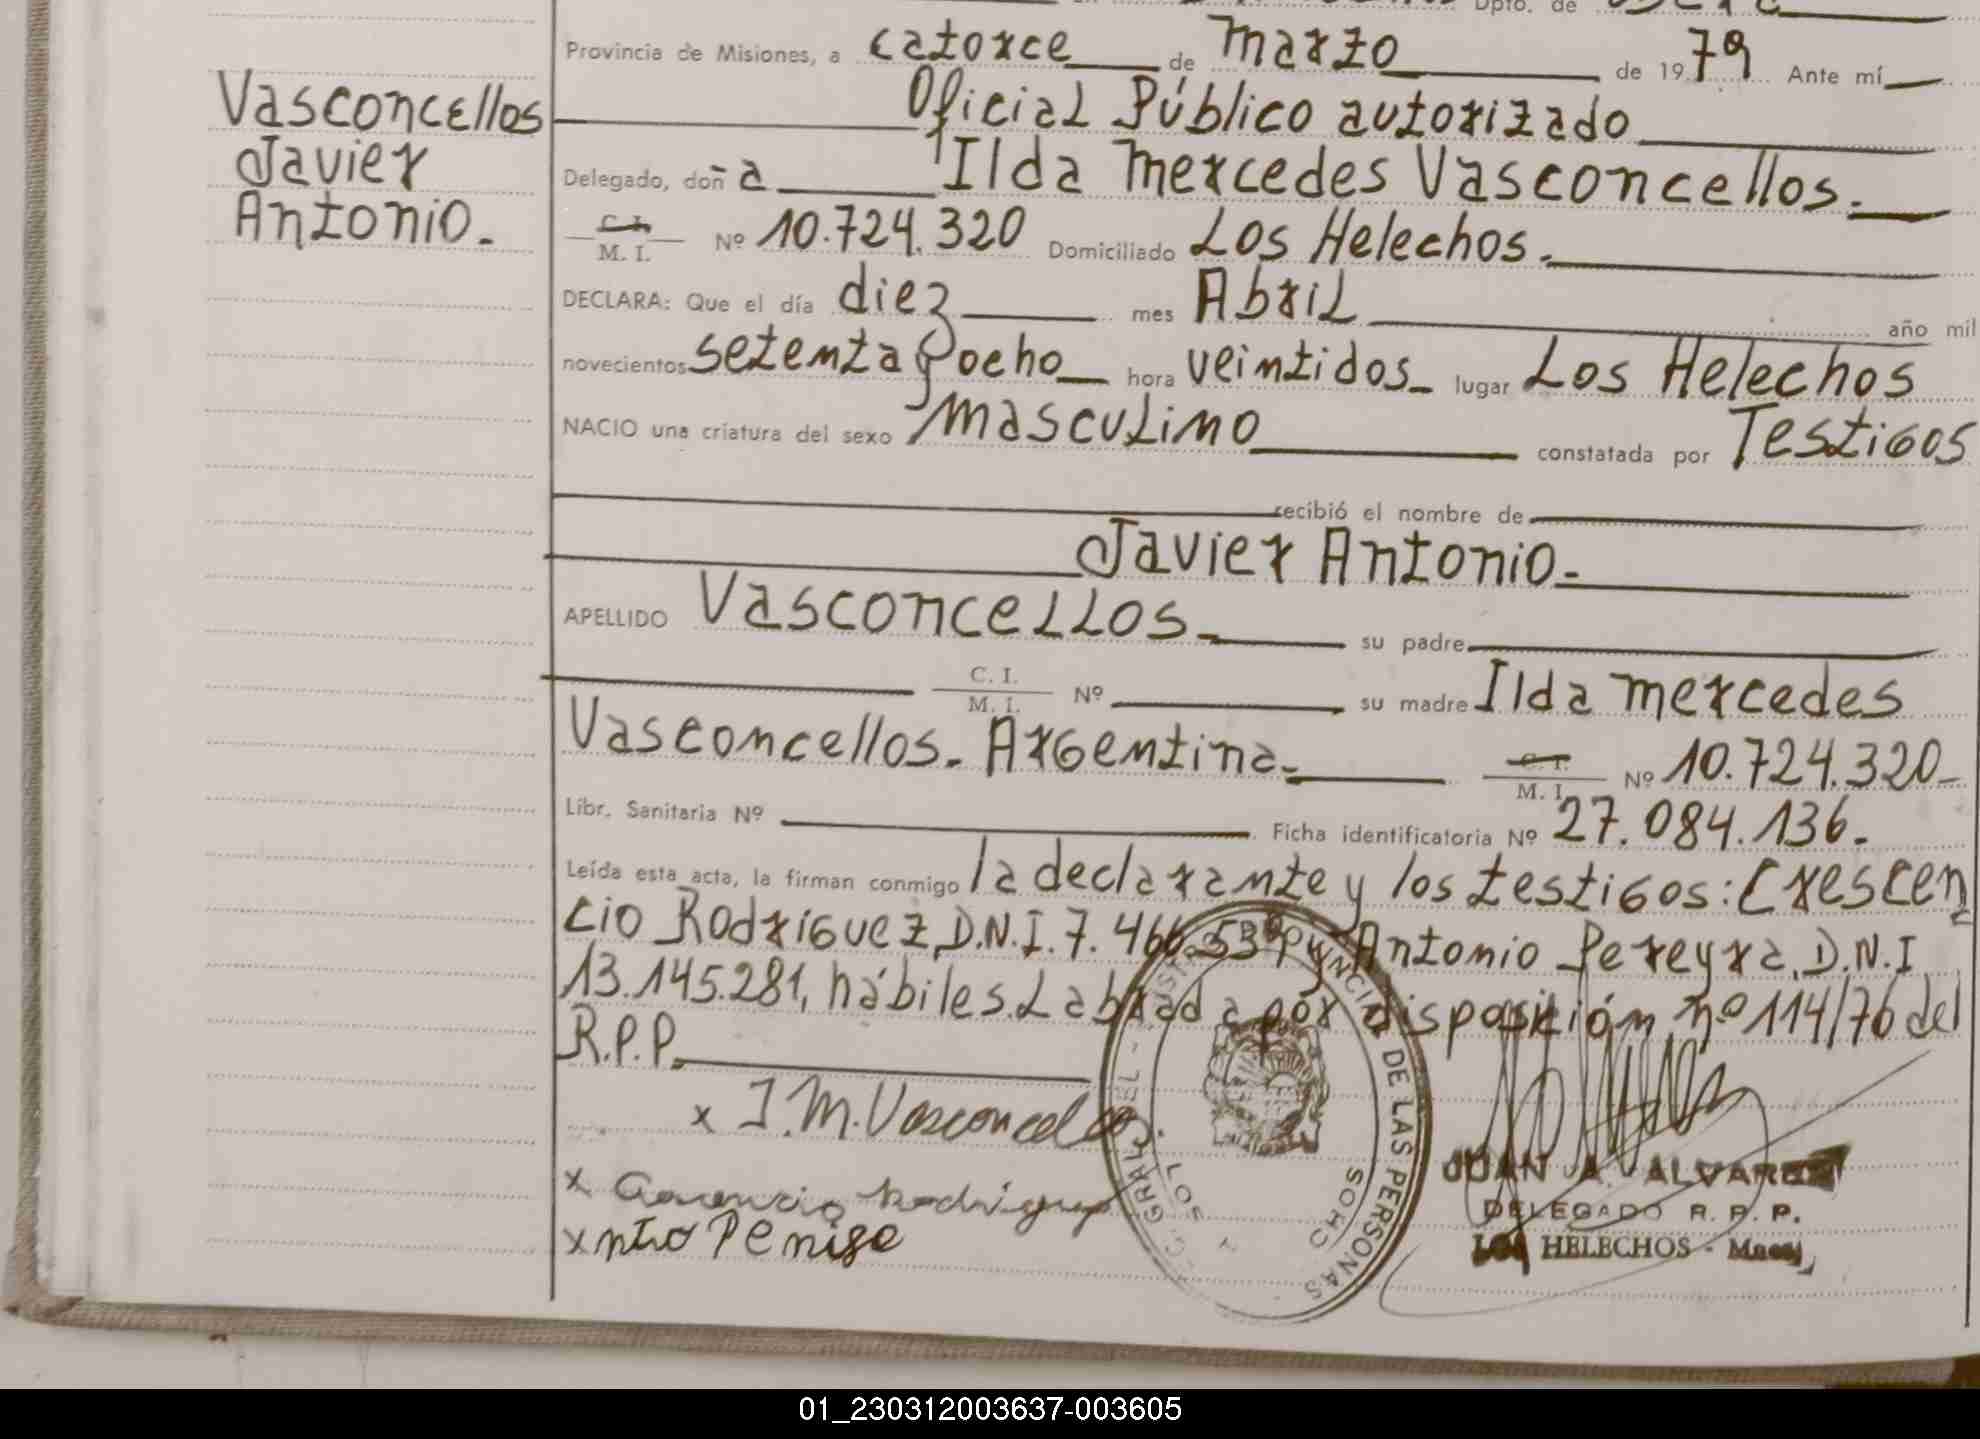 Dpto. de
Provincia de Misiones, a catorce de Marzo de 1979 Ante mí
Oficial Público autorizado
Delegado, doña Ilda Mercedes Vasconcellos.
C. I.
M. I. Nº 10.724.320 Domiciliado Los Helechos.
DECLARA: Que el día diez mes Abril año mil
novecientos setenta y ocho hora veintidos lugar Los Helechos
NACIO una criatura del sexo Masculino constatada por Testigos
recibió el nombre de
Javier Antonio.
APELLIDO Vasconcellos. su padre
C. I.
M. I. Nº su madre Ilda Mercedes
Vasconcellos. Argentina. C. I.
M. I. Nº 10.724.320
Libr. Sanitaria Nº Ficha identificatoria Nº 27.084.136.
Leída esta acta, la firman conmigo la declarante y los testigos: Crescen
cio Rodriguez, D.N.I. 7.466.53 y Antonio Pereyra, D.N.I
13.145.281, hábiles. Labrada por disposición nº 114/76 del
R.P.P.
x I.M. Vasconcellos
x Rodriguez
x
Vasconcellos
Javier
Antonio.
DE LAS PERSONAS
JUAN A. ALVAREZ
DELEGADO R. P. P.
LOS HELECHOS - Mnes
01_230312003637-003605